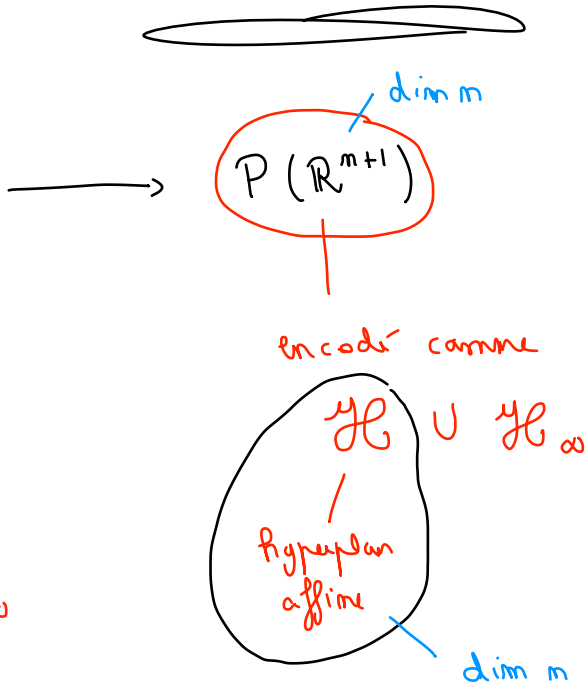 dim n
P(ℝⁿ⁺¹)
encodé comme
ℋ ∪ ℋ∞
hyperplan
affine
dim n